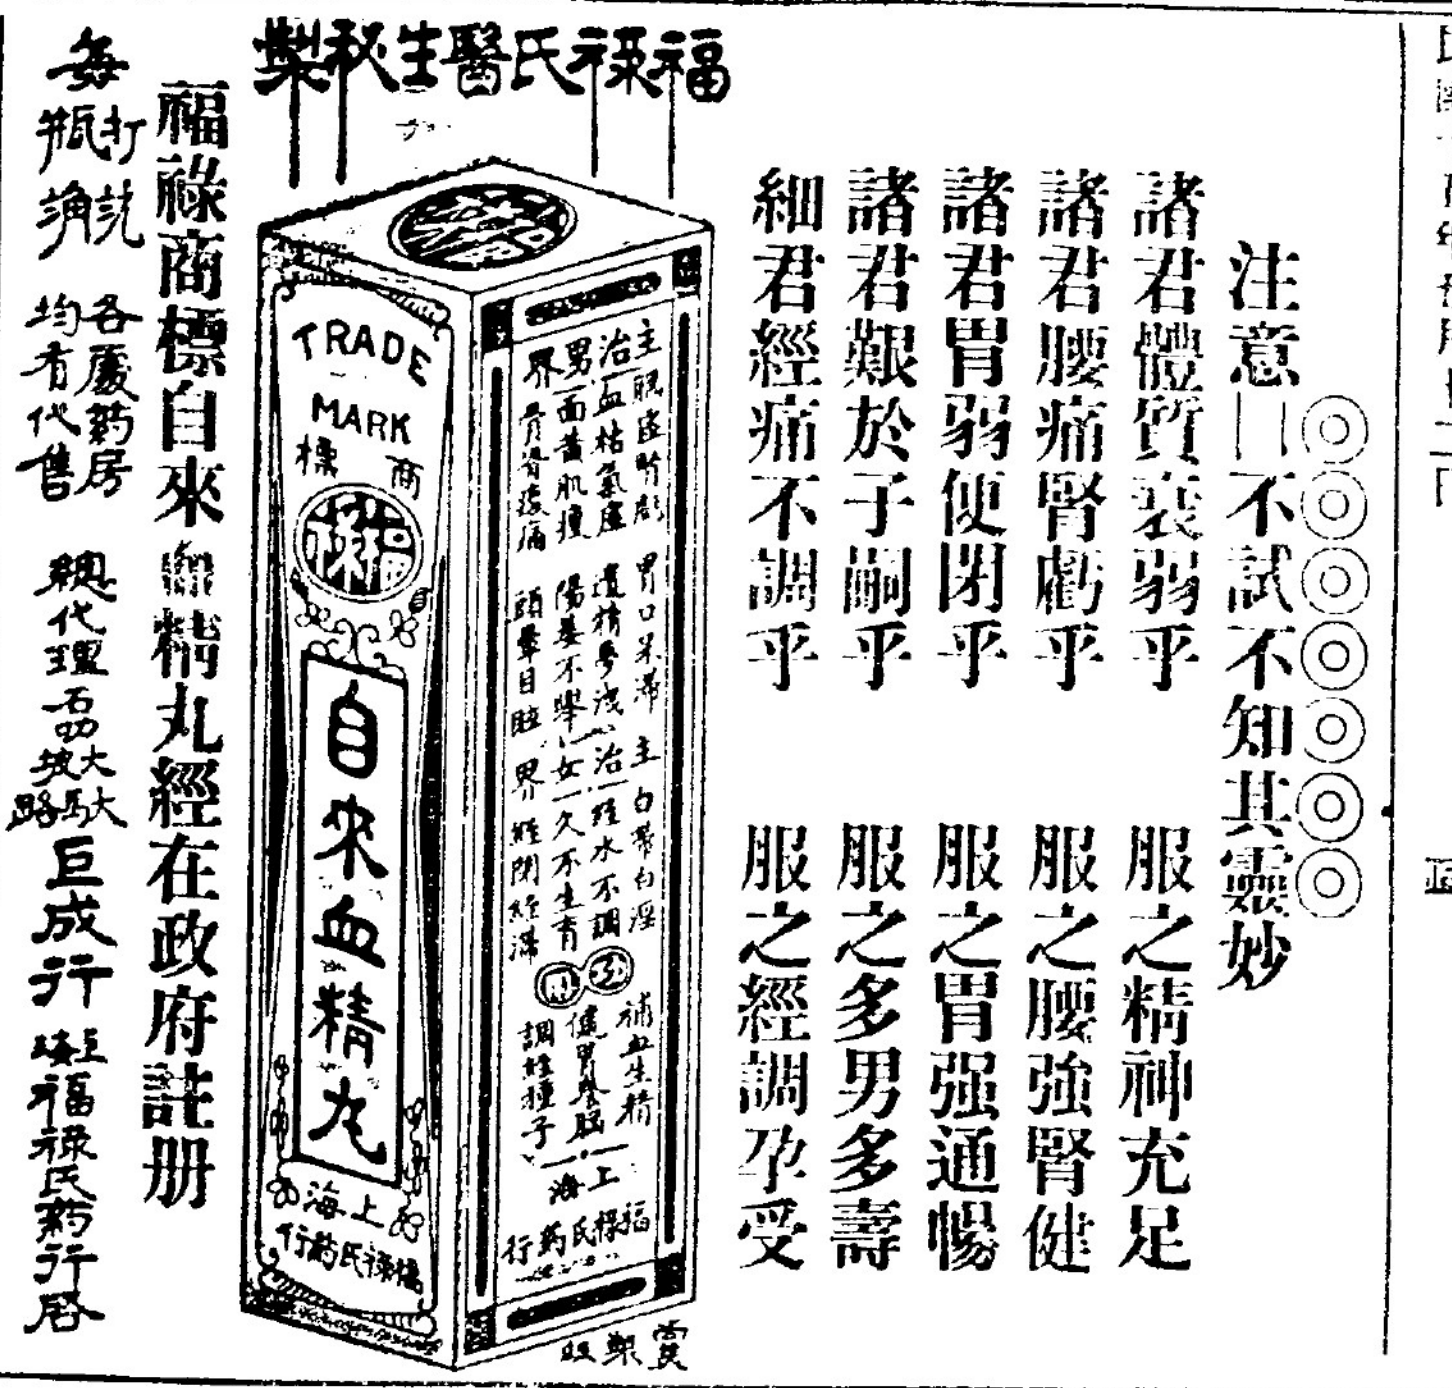 福祿氏醫生秘製
注意——不試不知其靈妙
諸君體質衰弱乎 服之精神充足
諸君腰痛腎虧乎 服之腰強腎健
諸君胃弱便閉乎 服之胃强通暢
諸君艱於子嗣乎 服之多男多壽
細君經痛不調乎 服之經調孕受
TRADE
MARK
商標
福祿
自來血精丸
上海
福祿氏药行
主治男界
血枯氣虛
面黃肌瘦
胃口呆滯
遺精夢洩
陽萎不舉
頭暈目眩
主治女界
白帶白淫
經水不調
久不生育
經閉經滯
補血生精
健胃養腦
調經種子
上海
福祿氏药行
福祿商標自來血精丸經在政府註册
每打
瓶
各處药房
均有代售
總代理
大馱
坡路
巨成行
福祿氏药行啓